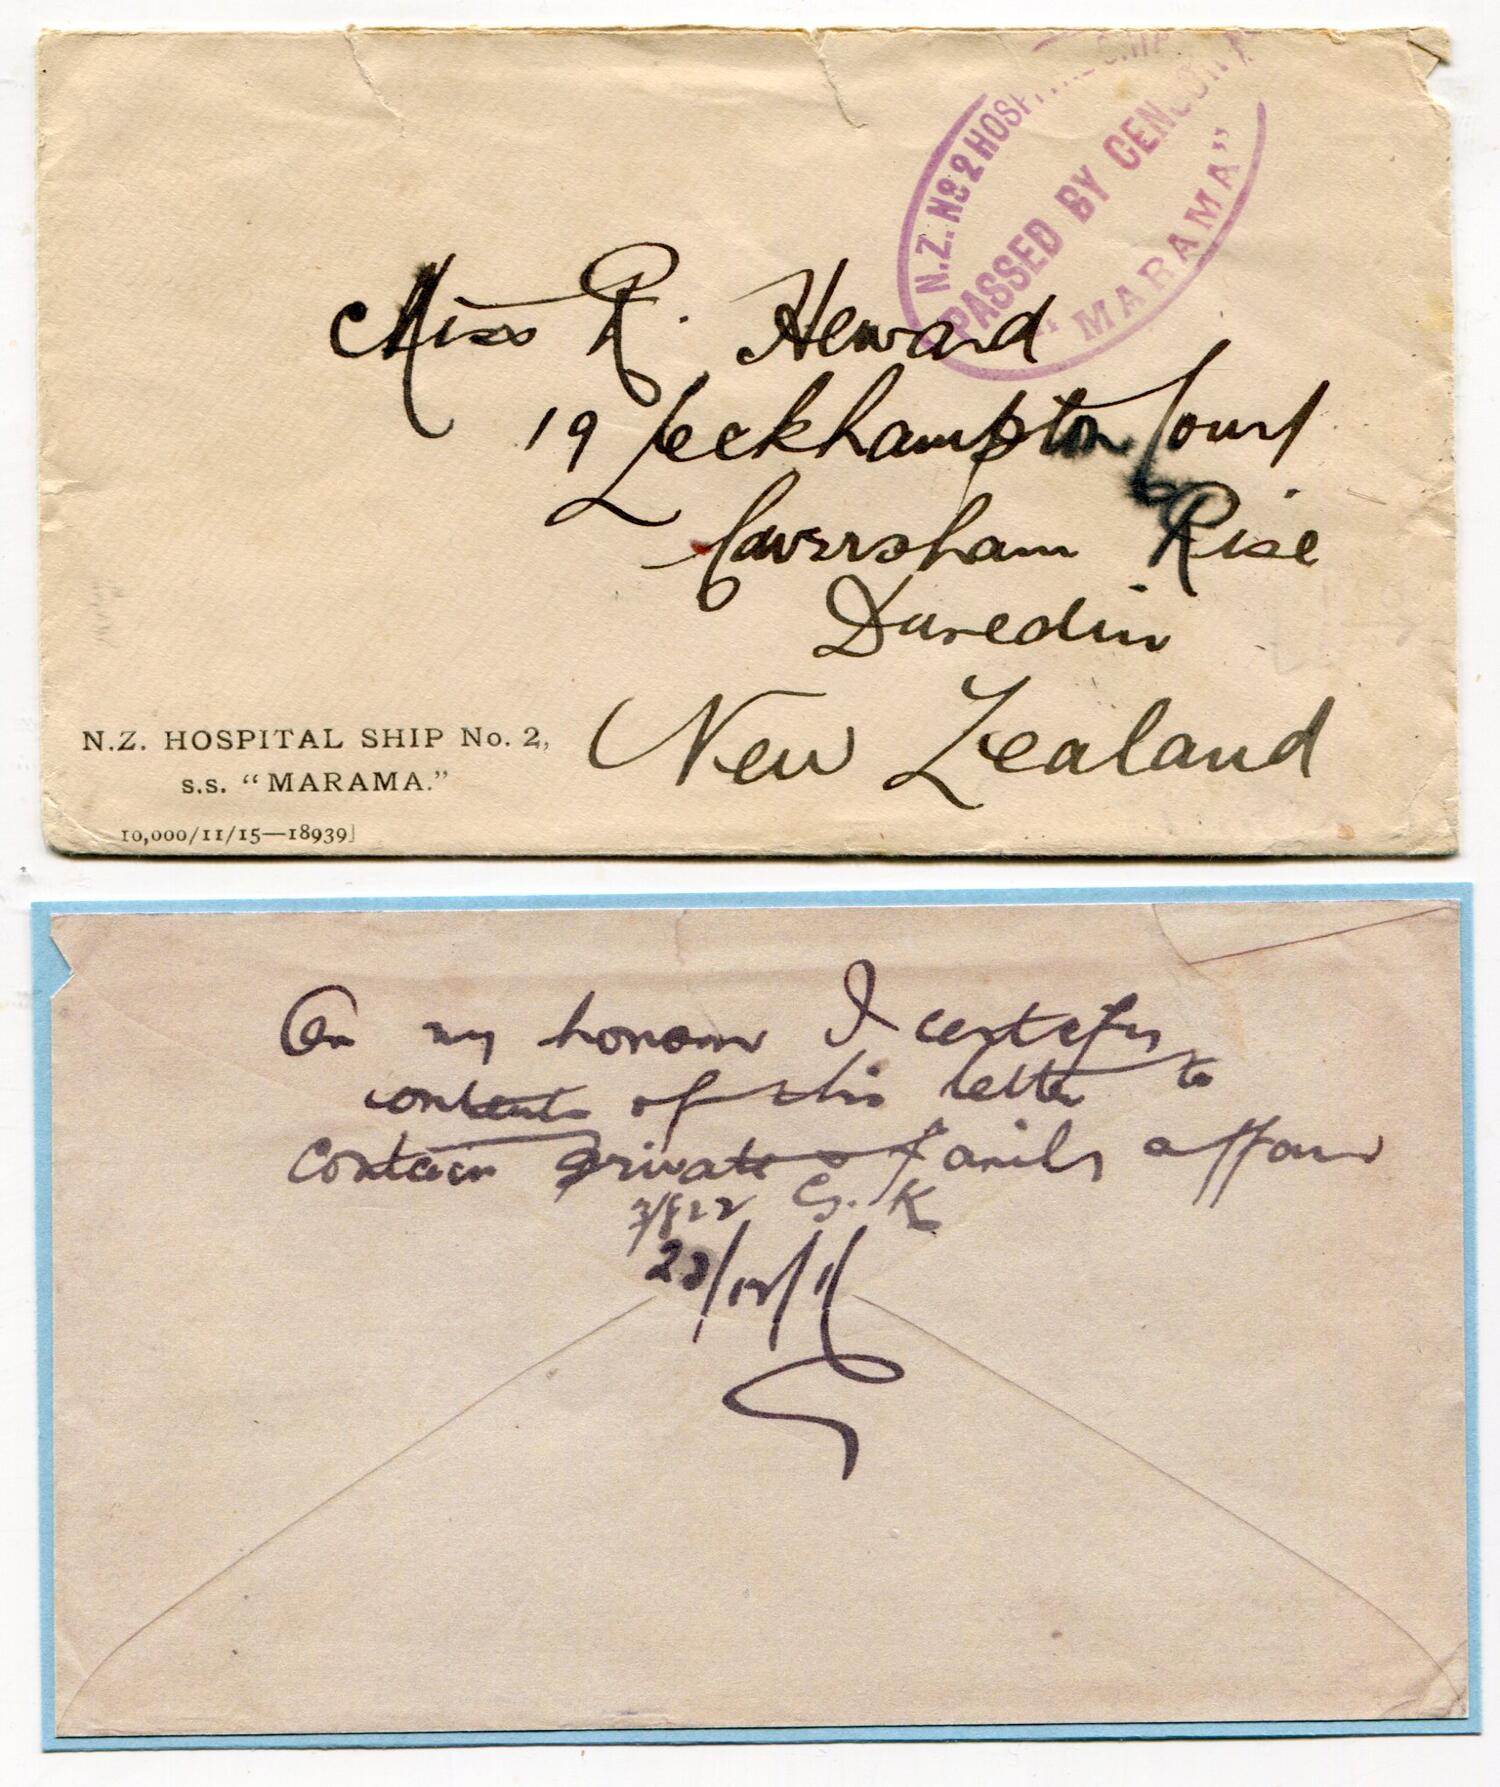 N.Z. No 2 HOSPITAL SHIP
PASSED BY CENSOR
"MARAMA"
Miss R. Heward
19 Leckhampton Court
Caversham Rise
Dunedin
New Zealand
N.Z. HOSPITAL SHIP No. 2,
s.s. "MARAMA."
10,000/11/15—18939]
On my honour I certify
contents of this letter to
contain private & family affairs
G. K